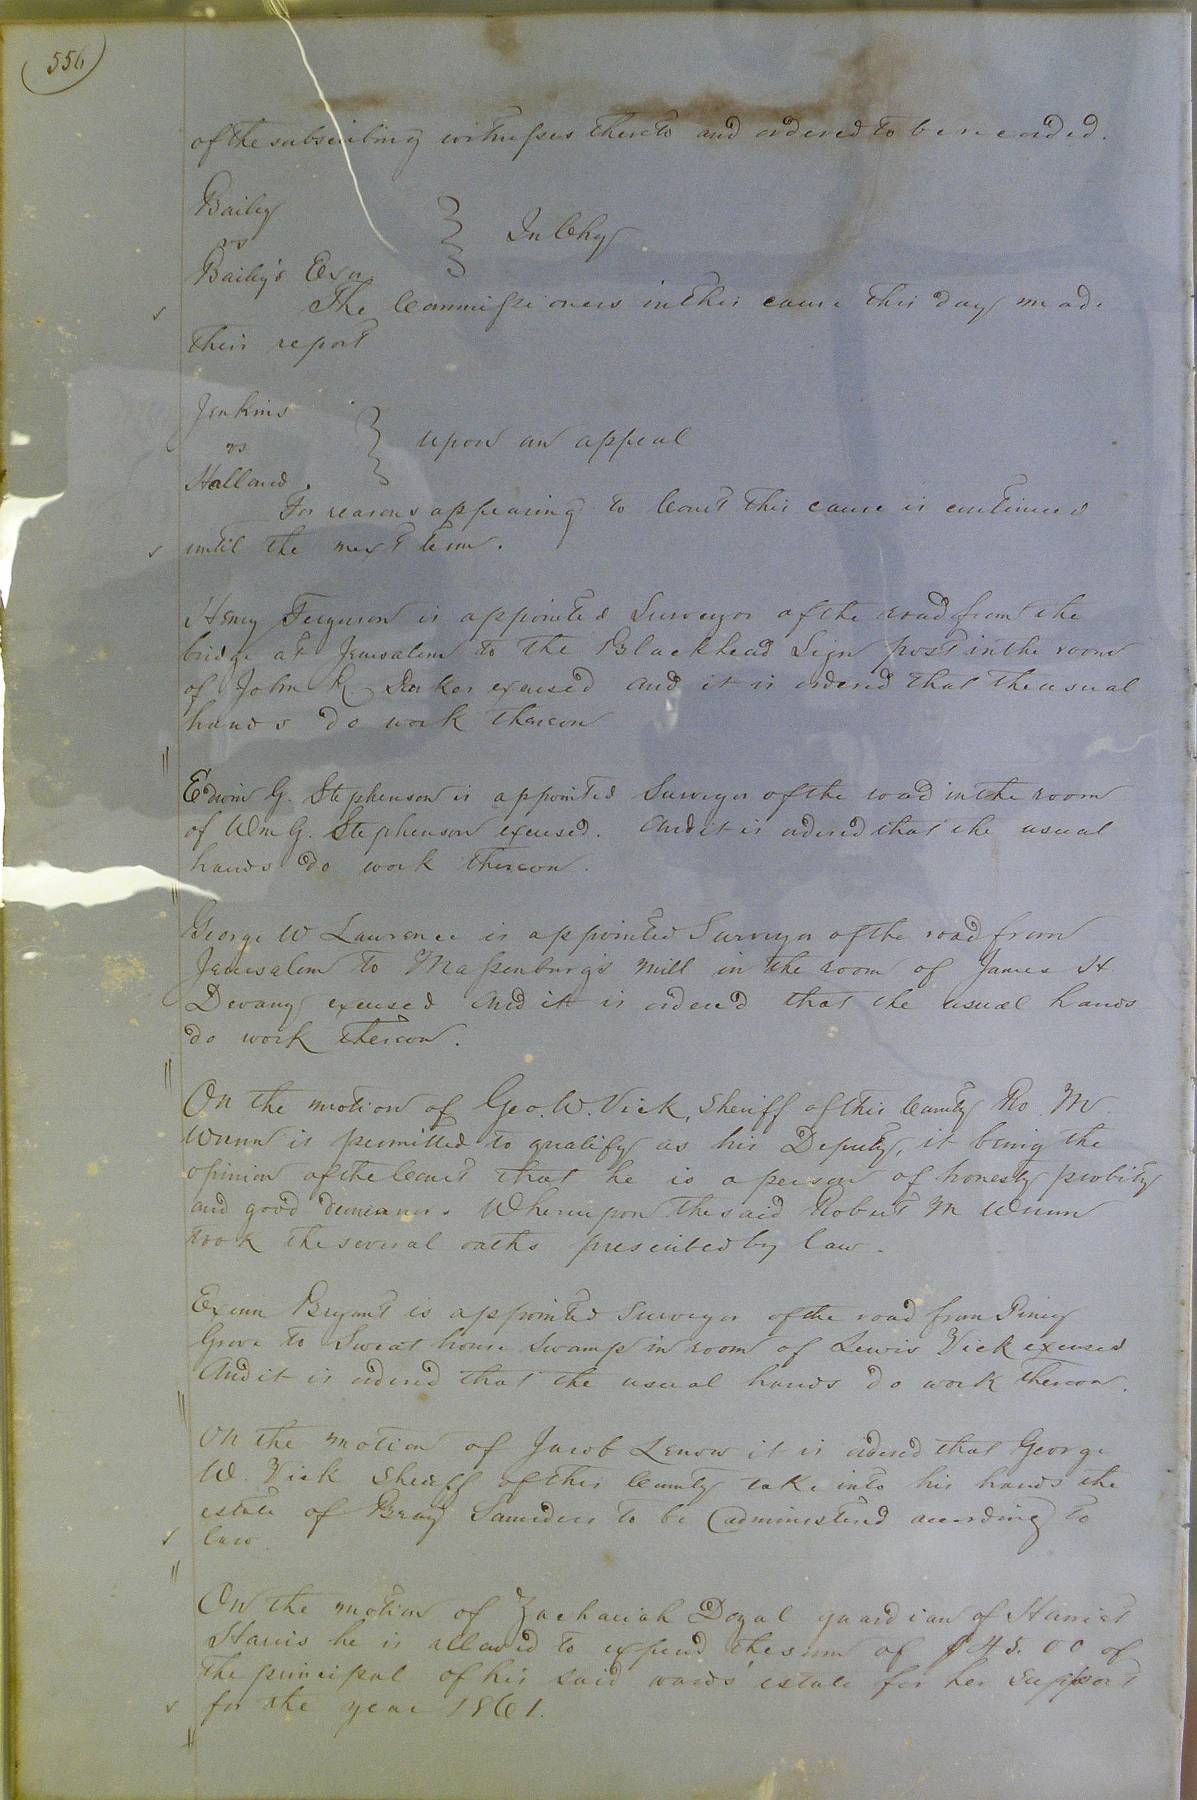 556
of the subscribing witnesses thereto and ordered to be recorded.
Bailey
vs
In Chy
Bailey's Exor
The Commissioners in this cause this day made
their report
Jenkins
vs
upon an appeal
Holland.
For reasons appearing to Court this cause is continued
until the next term.
Henry Ferguson is appointed Surveyor of the road from the
bridge at Jerusalem to the Blackhead Sign post in the room
of John R. excused and it is ordered that the usual
hands do work thereon
Edwin G. Stephenson is appointed Surveyor of the road in the room
of Wm G. Stephenson excused. And it is ordered that the usual
hands do work thereon.
George W Lawrence is appointed Surveyor of the road from
Jerusalem to Massenburg's mill in the room of James H
Devany excused And it is ordered that the usual hands
do work thereon.
On the motion of Geo. W. Vick, Sheriff of this County Ro. M
Wunn is permitted to qualify as his Deputy, it being the
opinion of the Court that he is a person of honesty probity
and good demeanor. Whereupon the said Robert M Wunn
took the several oaths prescribed by law.
Exum Bryant is appointed Surveyor of the road from Piney
Grove to Sweat house Swamp in room of Lewis Vick excused
And it is ordered that the usual hands do work thereon.
On the motion of Jacob Lenow it is ordered that George
W. Vick Sheriff of this County take into his hands the
estate of Saunders to be administered according to
law.
On the motion of Zachariah Doyal guardian of Harriet
Harris he is allowed to expend the sum of $45.00 of
the principal of his said wards' estate for her support
for the year 1861.